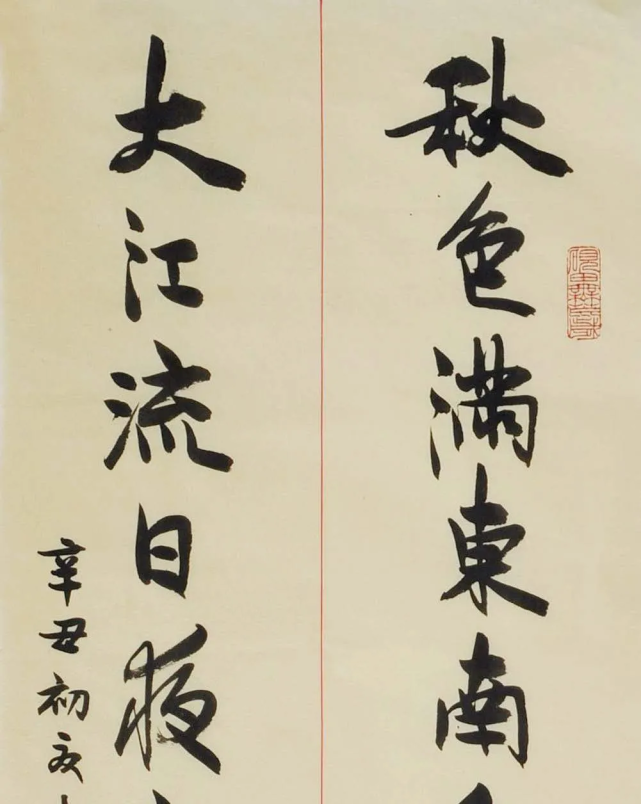 秋色滿東南
大江流日夜
辛丑初夏